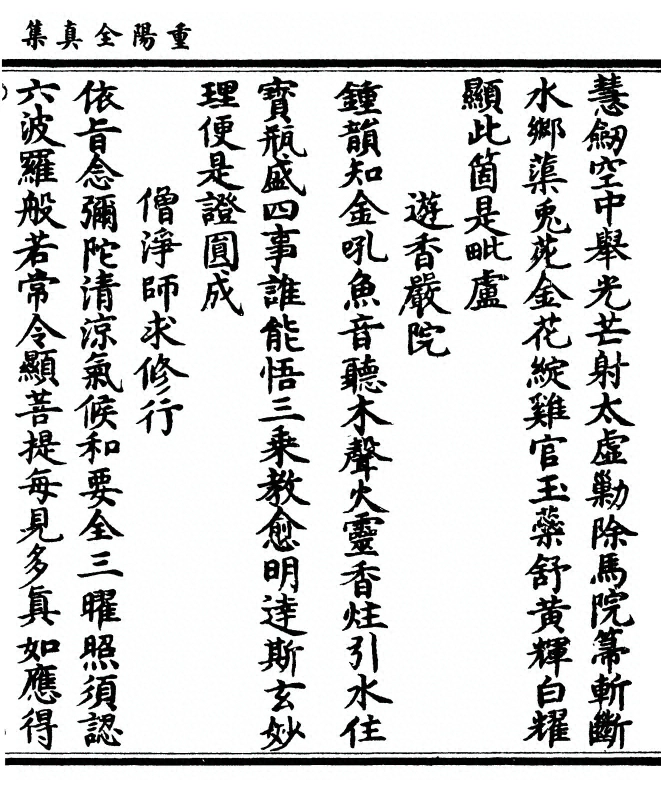 重陽全真集
慧劒空中舉光芒射太虛勦除馬院箒斬斷
水鄉蕖兎苑金花綻雞官玉蘂舒黄輝白耀
顯此箇是毗盧
遊香嚴院
鍾韻知金吼魚音聽木聲火靈香炷引水住
寳瓶盛四事誰能悟三乘教愈明達斯玄妙
理便是證圓成
僧淨師求修行
依旨念彌陀清涼氣候和要全三曜照須認
六波羅般若常令顯菩提每見多真如應得